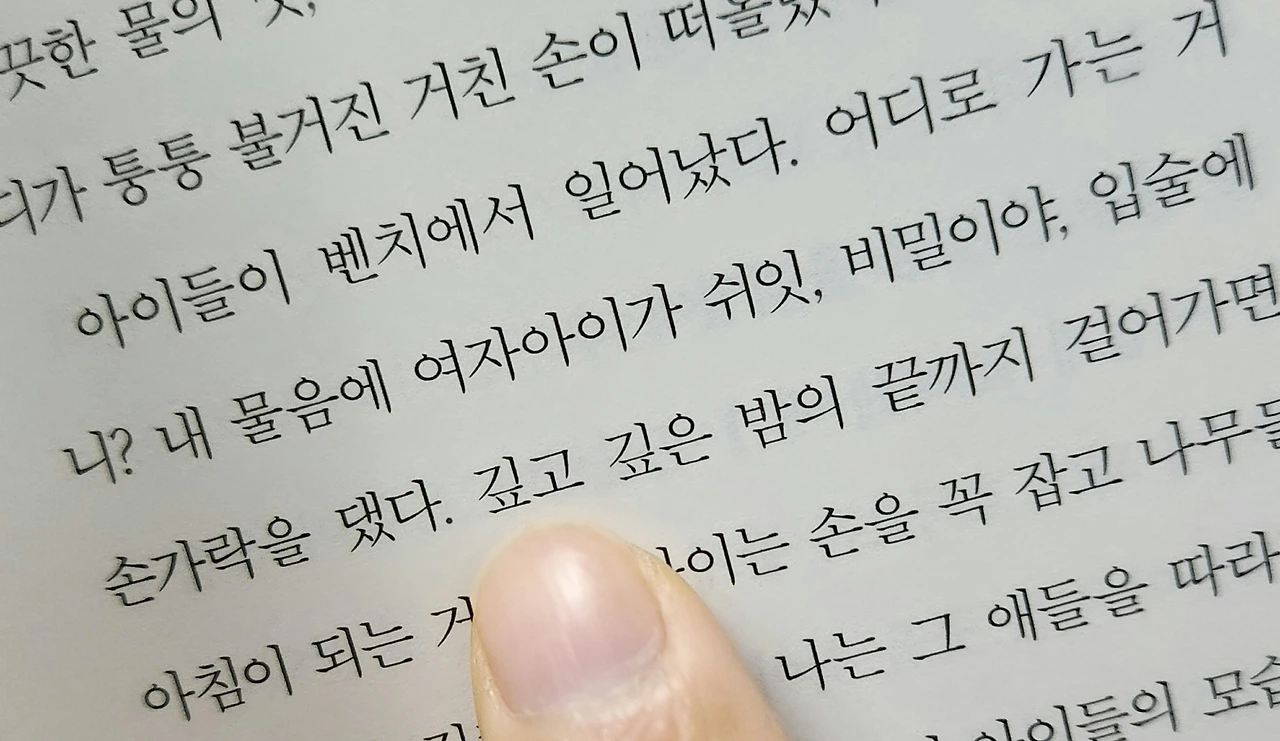 물의
가 퉁퉁 불거진 거친 손이
아이들이 벤치에서 일어났다. 어디로 가는 거
니? 내 물음에 여자아이가 쉬잇, 비밀이야, 입술에
손가락을 댔다. 깊고 깊은 밤의 끝까지 걸어가면
아침이 되는 손을 꼭 잡고
나는 그 애들을 따라
아이들의